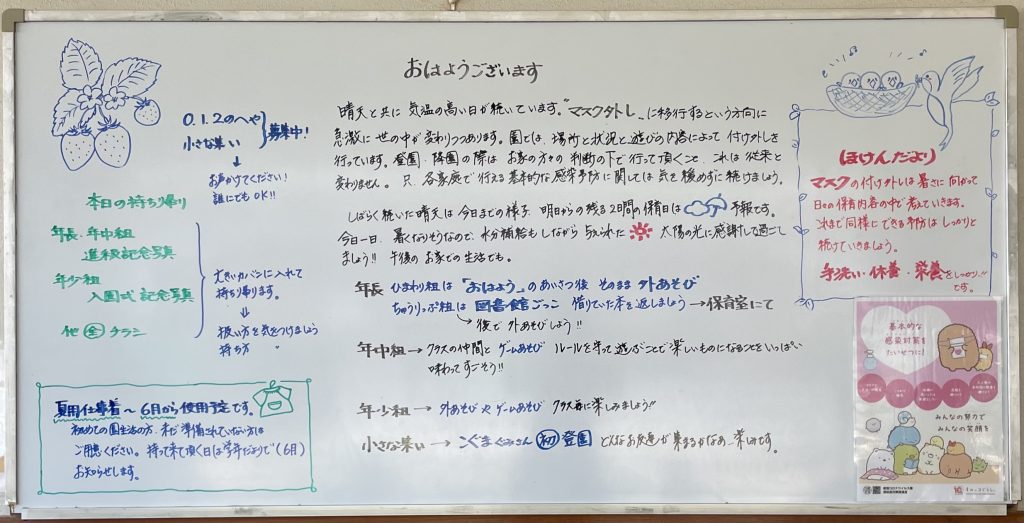 おはようございます
0.1.2のへや
小さな集い
募集中!
お声かけてください!
誰にでもOK!!
本日の持ち帰り
年長・年中組
進級記念写真
年少組
入園式記念写真
他 全 チラシ
大きいカバンに入れて
持ち帰ります。
扱い方を気をつけましょう
持ち方 〃
夏用仕事着～6月から使用予定です。
初めての園生活の方、まだ準備されていない方は
ご用意ください。持って来て頂く日は学年だよりで(6月)
お知らせします。
晴天と共に気温の高い日が続いています。"マスク外し"に移行するという方向に
急激に世の中が変わりつつあります。園では、場所と状況と遊びの内容によって付け外しを
行っています。登園・降園の際はお家の方々の判断の下で行って頂くこと、これは従来と
変わりません。只、各家庭で行える基本的な感染予防に関しては気を緩めずに続けましょう。
しばらく続いた晴天は今日までの様子、明日からの残る2日間の保育日は 予報です。
今日一日、暑くなりそうなので、水分補給もしながら与えられた 太陽の光に感謝して過ごし
ましょう!! 午後のお家での生活でも。
年長 ひまわり組は「おはよう」のあいさつ後 そのまま外あそび
ちゅうりっぷ組は 図書館ごっこ 借りていた本を返しましょう→保育室にて
後で外あそびしよう!!
年中組→クラスの仲間とゲームあそび ルールを守って遊ぶことで楽しいものになることをいっぱい
味わってすごそう!!
年少組→外あそびやゲームあそび クラス毎に楽しみましょう!!
小さな集い→こぐまぐみさん 初 登園 どんなお友達が集まるかなあ…楽しみです。
ほけんだより
マスクの付け外しは暑さに向かって
日々の保育内容の中で考えていきます。
これまで同様にできる予防はしっかりと
続けていきましょう。
手洗い・休養・栄養をしっかり!!
です。
基本的な
感染対策を
たいせつに!
みんなの努力で
みんなの笑顔を